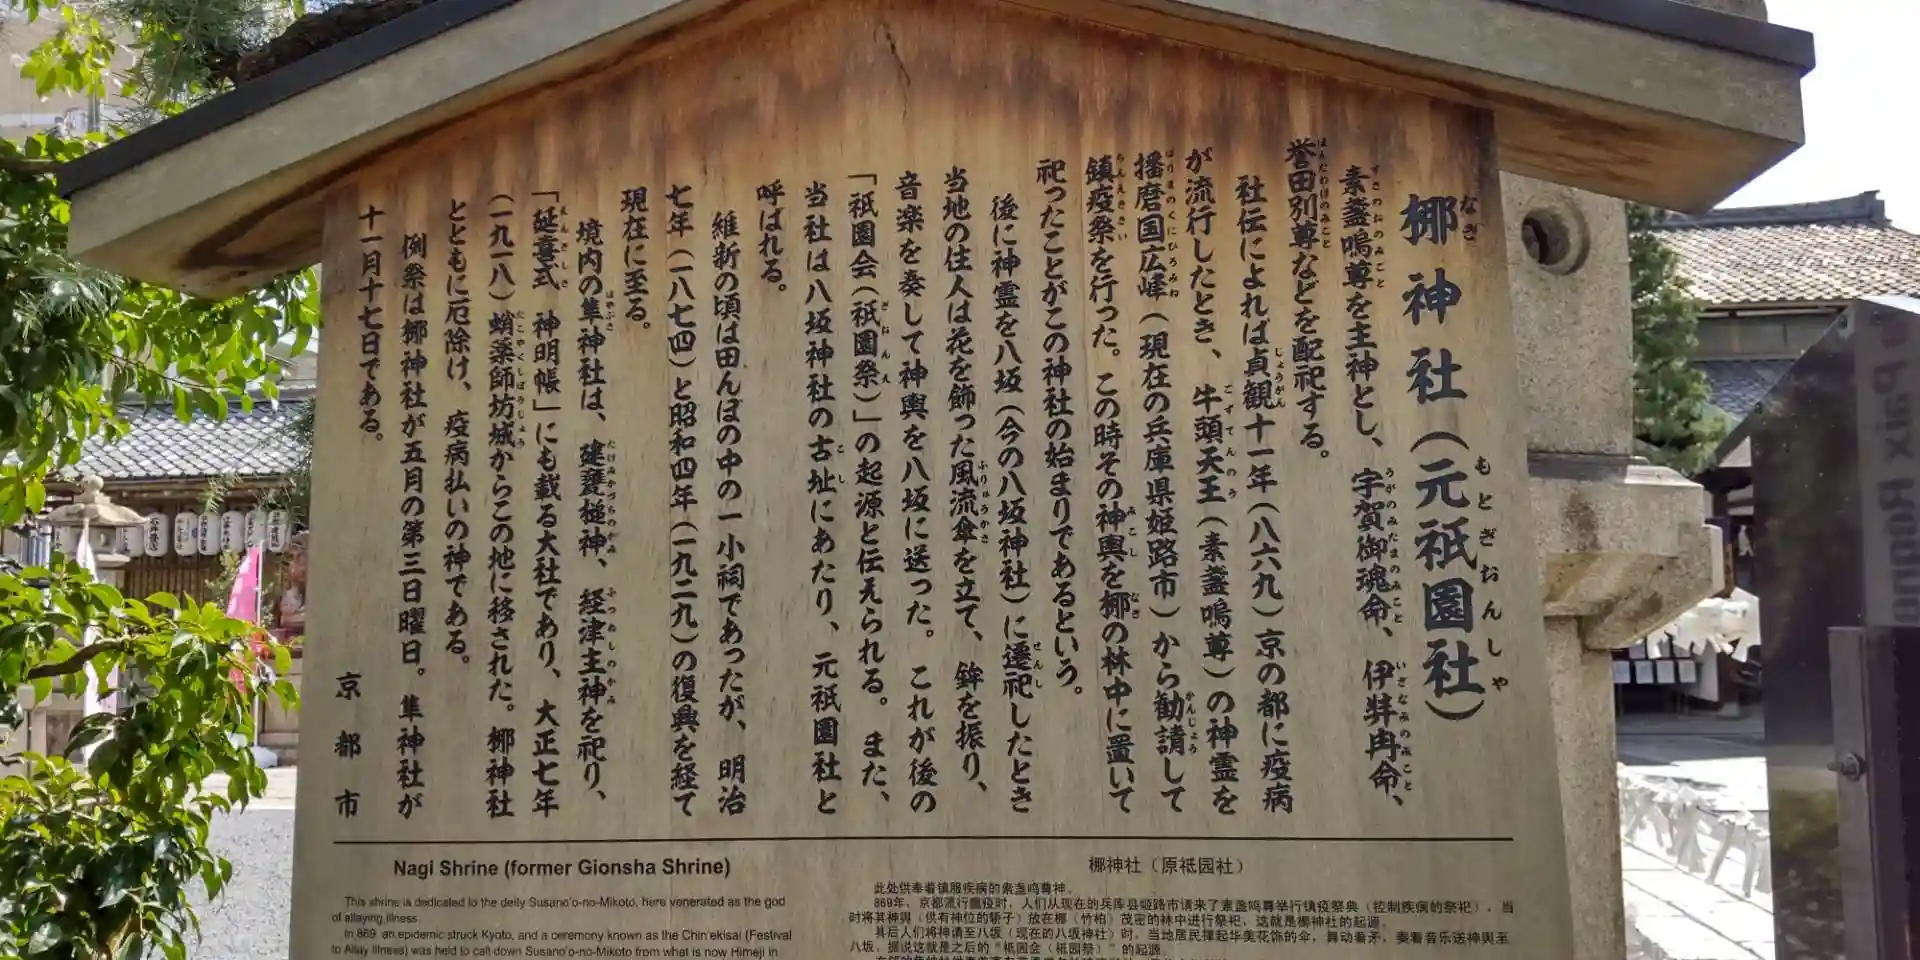 梛神社（元祇園社）
素盞嗚尊を主神とし、宇賀御魂命、伊弉冉命、
誉田別尊などを配祀する。
社伝によれば貞観十一年（八六九）京の都に疫病
が流行したとき、牛頭天王（素盞嗚尊）の神霊を
播磨国広峰（現在の兵庫県姫路市）から勧請して
鎮疫祭を行った。この時その神輿を梛の林中に置いて
祀ったことがこの神社の始まりであるという。
後に神霊を八坂（今の八坂神社）に遷祀したとき
当地の住人は花を飾った風流傘を立て、鉾を振り、
音楽を奏して神輿を八坂に送った。これが後の
「祇園会（祇園祭）」の起源と伝えられる。また、
当社は八坂神社の古址にあたり、元祇園社と
呼ばれる。
維新の頃は田んぼの中の一小祠であったが、明治
七年（一八七四）と昭和四年（一九二九）の復興を経て
現在に至る。
境内の隼神社は、建甕槌神、経津主神を祀り、
「延喜式　神明帳」にも載る大社であり、大正七年
（一九一八）蛸薬師坊城からこの地に移された。梛神社
とともに厄除け、疫病払いの神である。
例祭は梛神社が五月の第三日曜日。隼神社が
十一月十七日である。
京都市
Nagi Shrine (former Gionsha Shrine)
This shrine is dedicated to the deity Susano'o-no-Mikoto, here venerated as the god
of allaying illness.
In 869 an epidemic struck Kyoto, and a ceremony known as the Chin'ekisai (Festival
to Allay Illness) was held to call down Susano'o-no-Mikoto from what is now Himeji in
梛神社（原祇园社）
此处供奉着镇服疾病的素盏鸣尊神。
869年，京都流行瘟疫时，人们从现在的兵库县姬路市请来了素盏鸣尊举行镇疫祭典（控制疾病的祭祀），当
时将其神舆（供有神位的轿子）放在梛（竹柏）茂密的林中进行祭祀，这就是梛神社的起源。
其后人们将神请至八坂（现在的八坂神社）时，当地居民撑起华美花饰的伞，舞动着矛，奏着音乐送神舆至
八坂，据说这就是之后的"祇园会（祇园祭）"的起源。
Paix